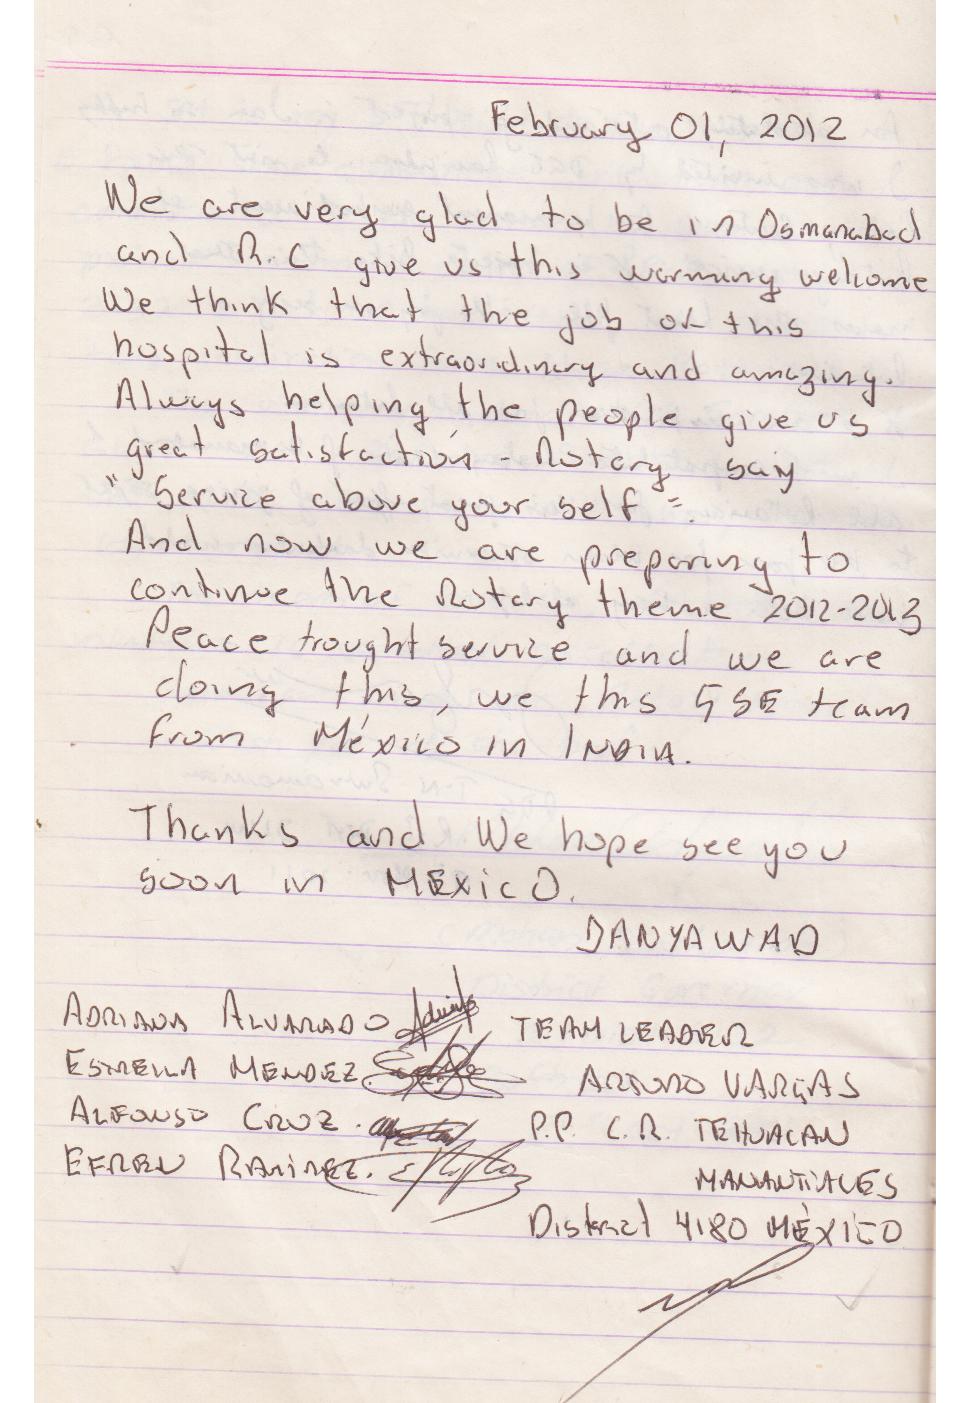 February 01, 2012
We are very glad to be in Osmanabad
and R.C give us this warmung welcome
We think that the job of this
hospital is extraordinary and amazing.
Always helping the people give us
great satisfaction - Rotary say
"Service above your self".
And now we are preparing to
continue the Rotary theme 2012-2013
Peace trought service and we are
doing this, we this GSE team
from México in INDIA.
Thanks and We hope see you
soon in MEXICO.
DANYAWAD
ADRIANA ALVARADO TEAM LEADER
ESTRELLA MENDEZ. ARTURO VARGAS
ALFONSO CRUZ. P.P. C.R. TEHUACAN
EFREN RAMIREZ. MANANTIALES
District 4180 MÉXICO